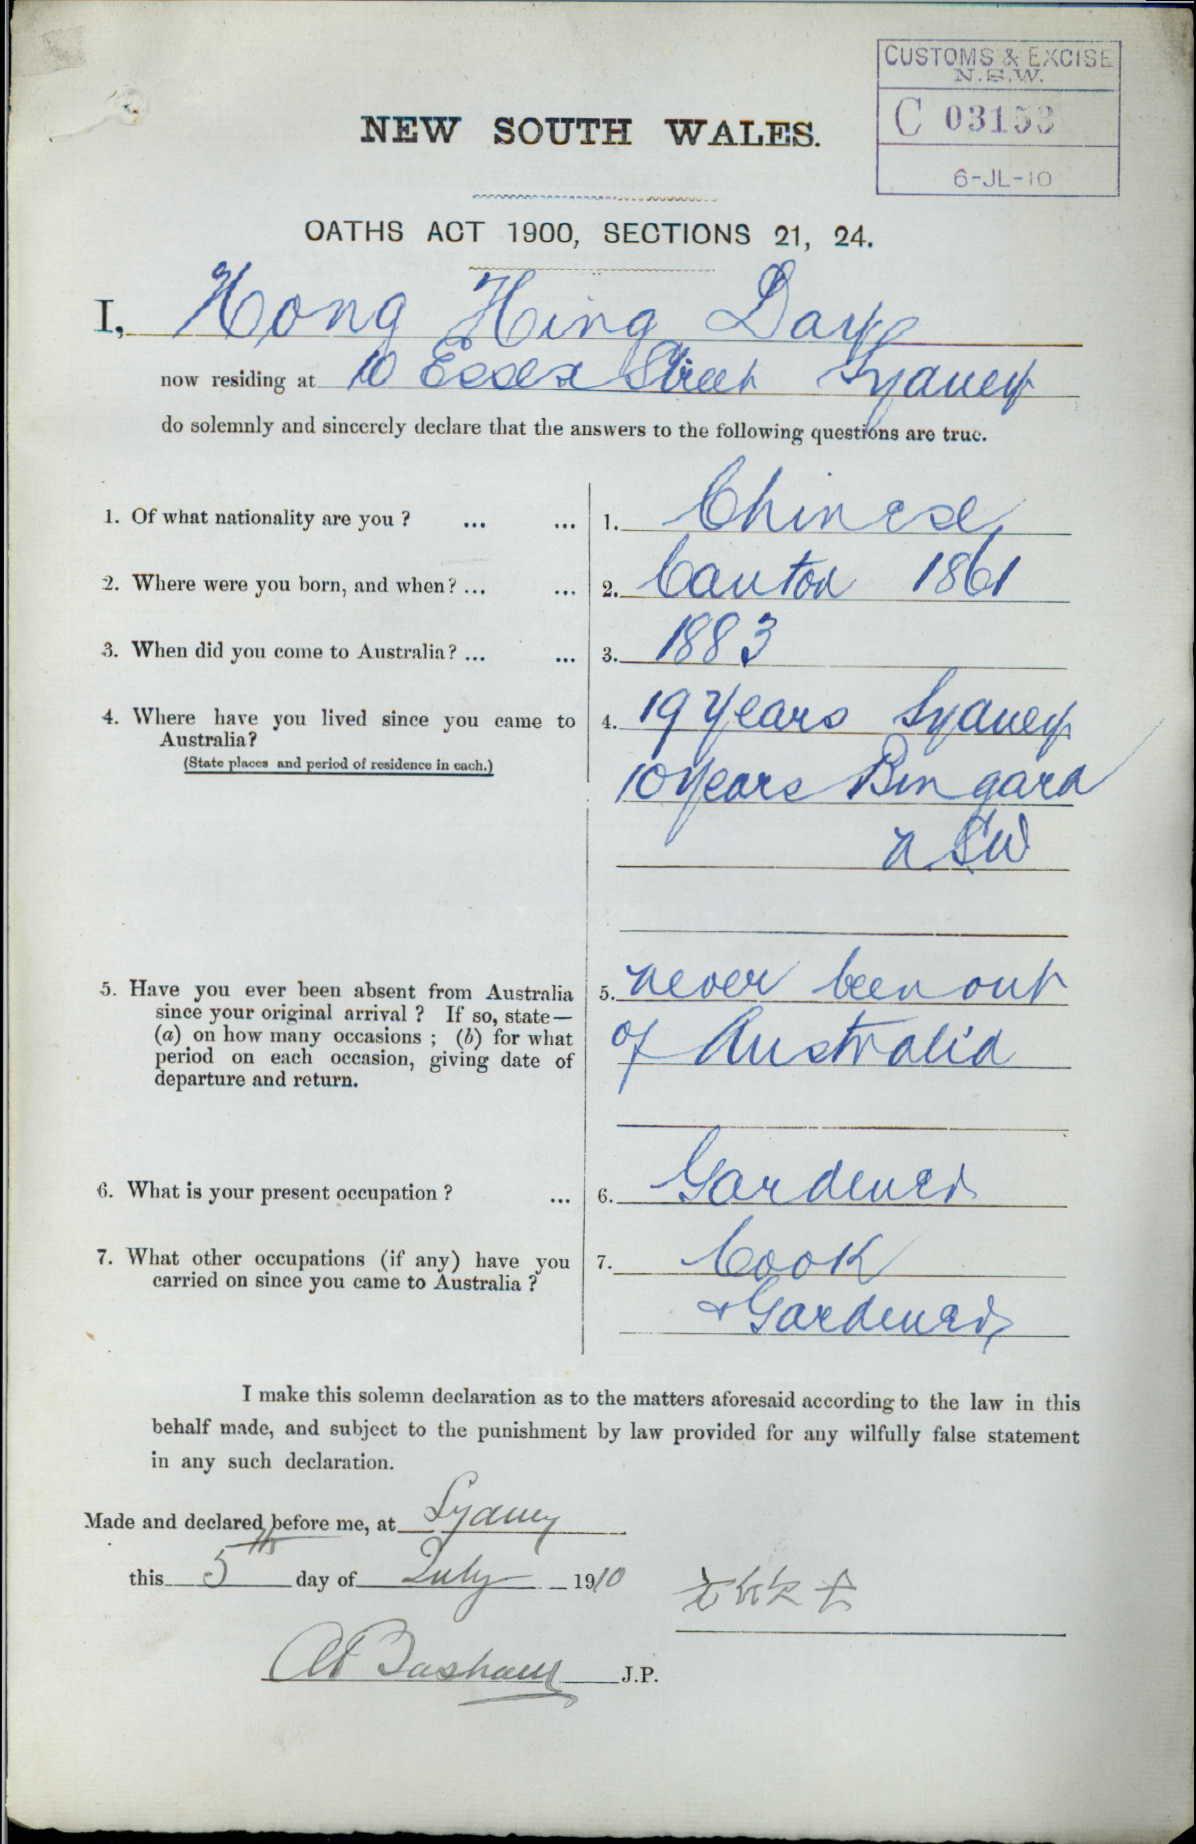 CUSTOMS & EXCISE
N.S.W.
C 03153
6-JL-10
NEW SOUTH WALES.
OATHS ACT 1900, SECTIONS 21, 24.
I, Hong Hing Day
now residing at 10 Essex Street Sydney
do solemnly and sincerely declare that the answers to the following questions are true.
1. Of what nationality are you ? ... ... 1. Chinese
2. Where were you born, and when? ... ... 2. Canton 1861
3. When did you come to Australia? ... ... 3. 1883
4. Where have you lived since you came to 4. 19 years Sydney
Australia?
(State places and period of residence in each.)
10 years Bingara
NSW
5. Have you ever been absent from Australia 5. never been out
since your original arrival ? If so, state—
(a) on how many occasions ; (b) for what of Australia
period on each occasion, giving date of
departure and return.
6. What is your present occupation ? ... 6. Gardener
7. What other occupations (if any) have you 7. Cook
carried on since you came to Australia ?
& Gardener
I make this solemn declaration as to the matters aforesaid according to the law in this
behalf made, and subject to the punishment by law provided for any wilfully false statement
in any such declaration.
Made and declared before me, at Sydney
this 5th day of July 1910
J.P.